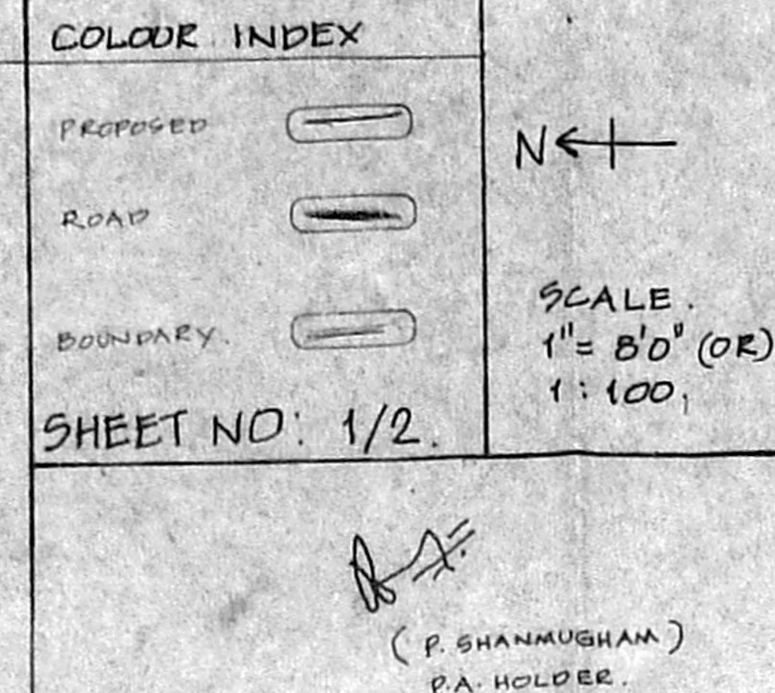 COLOUR INDEX
PROPOSED
ROAD
BOUNDARY.
SHEET NO: 1/2.
N
SCALE.
1"= 8'0" (OR)
1 : 100,
( P. SHANMUGHAM )
P.A. HOLDER.